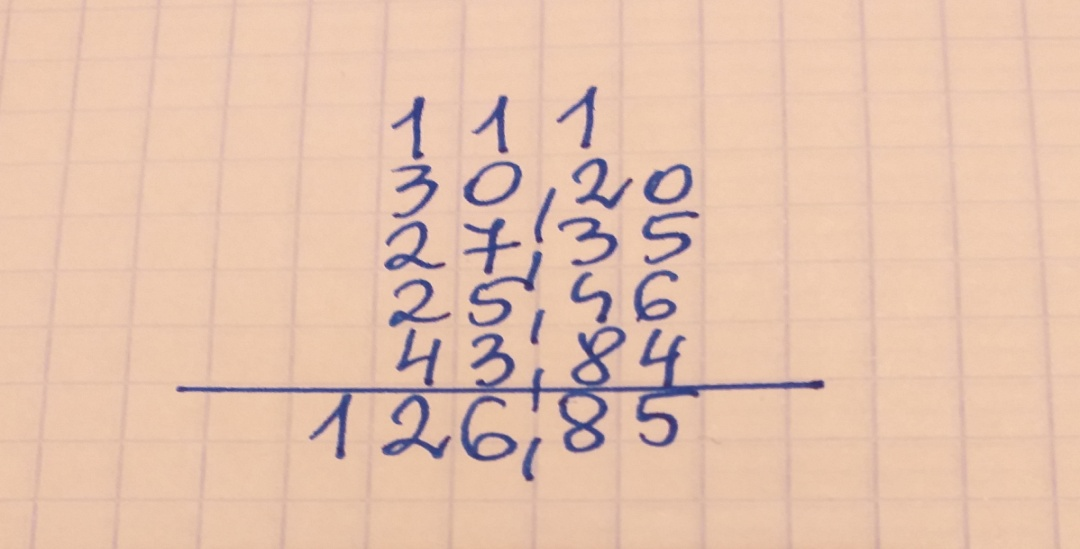 1 1 1
30,20
27,35
25,46
43,84
126,85